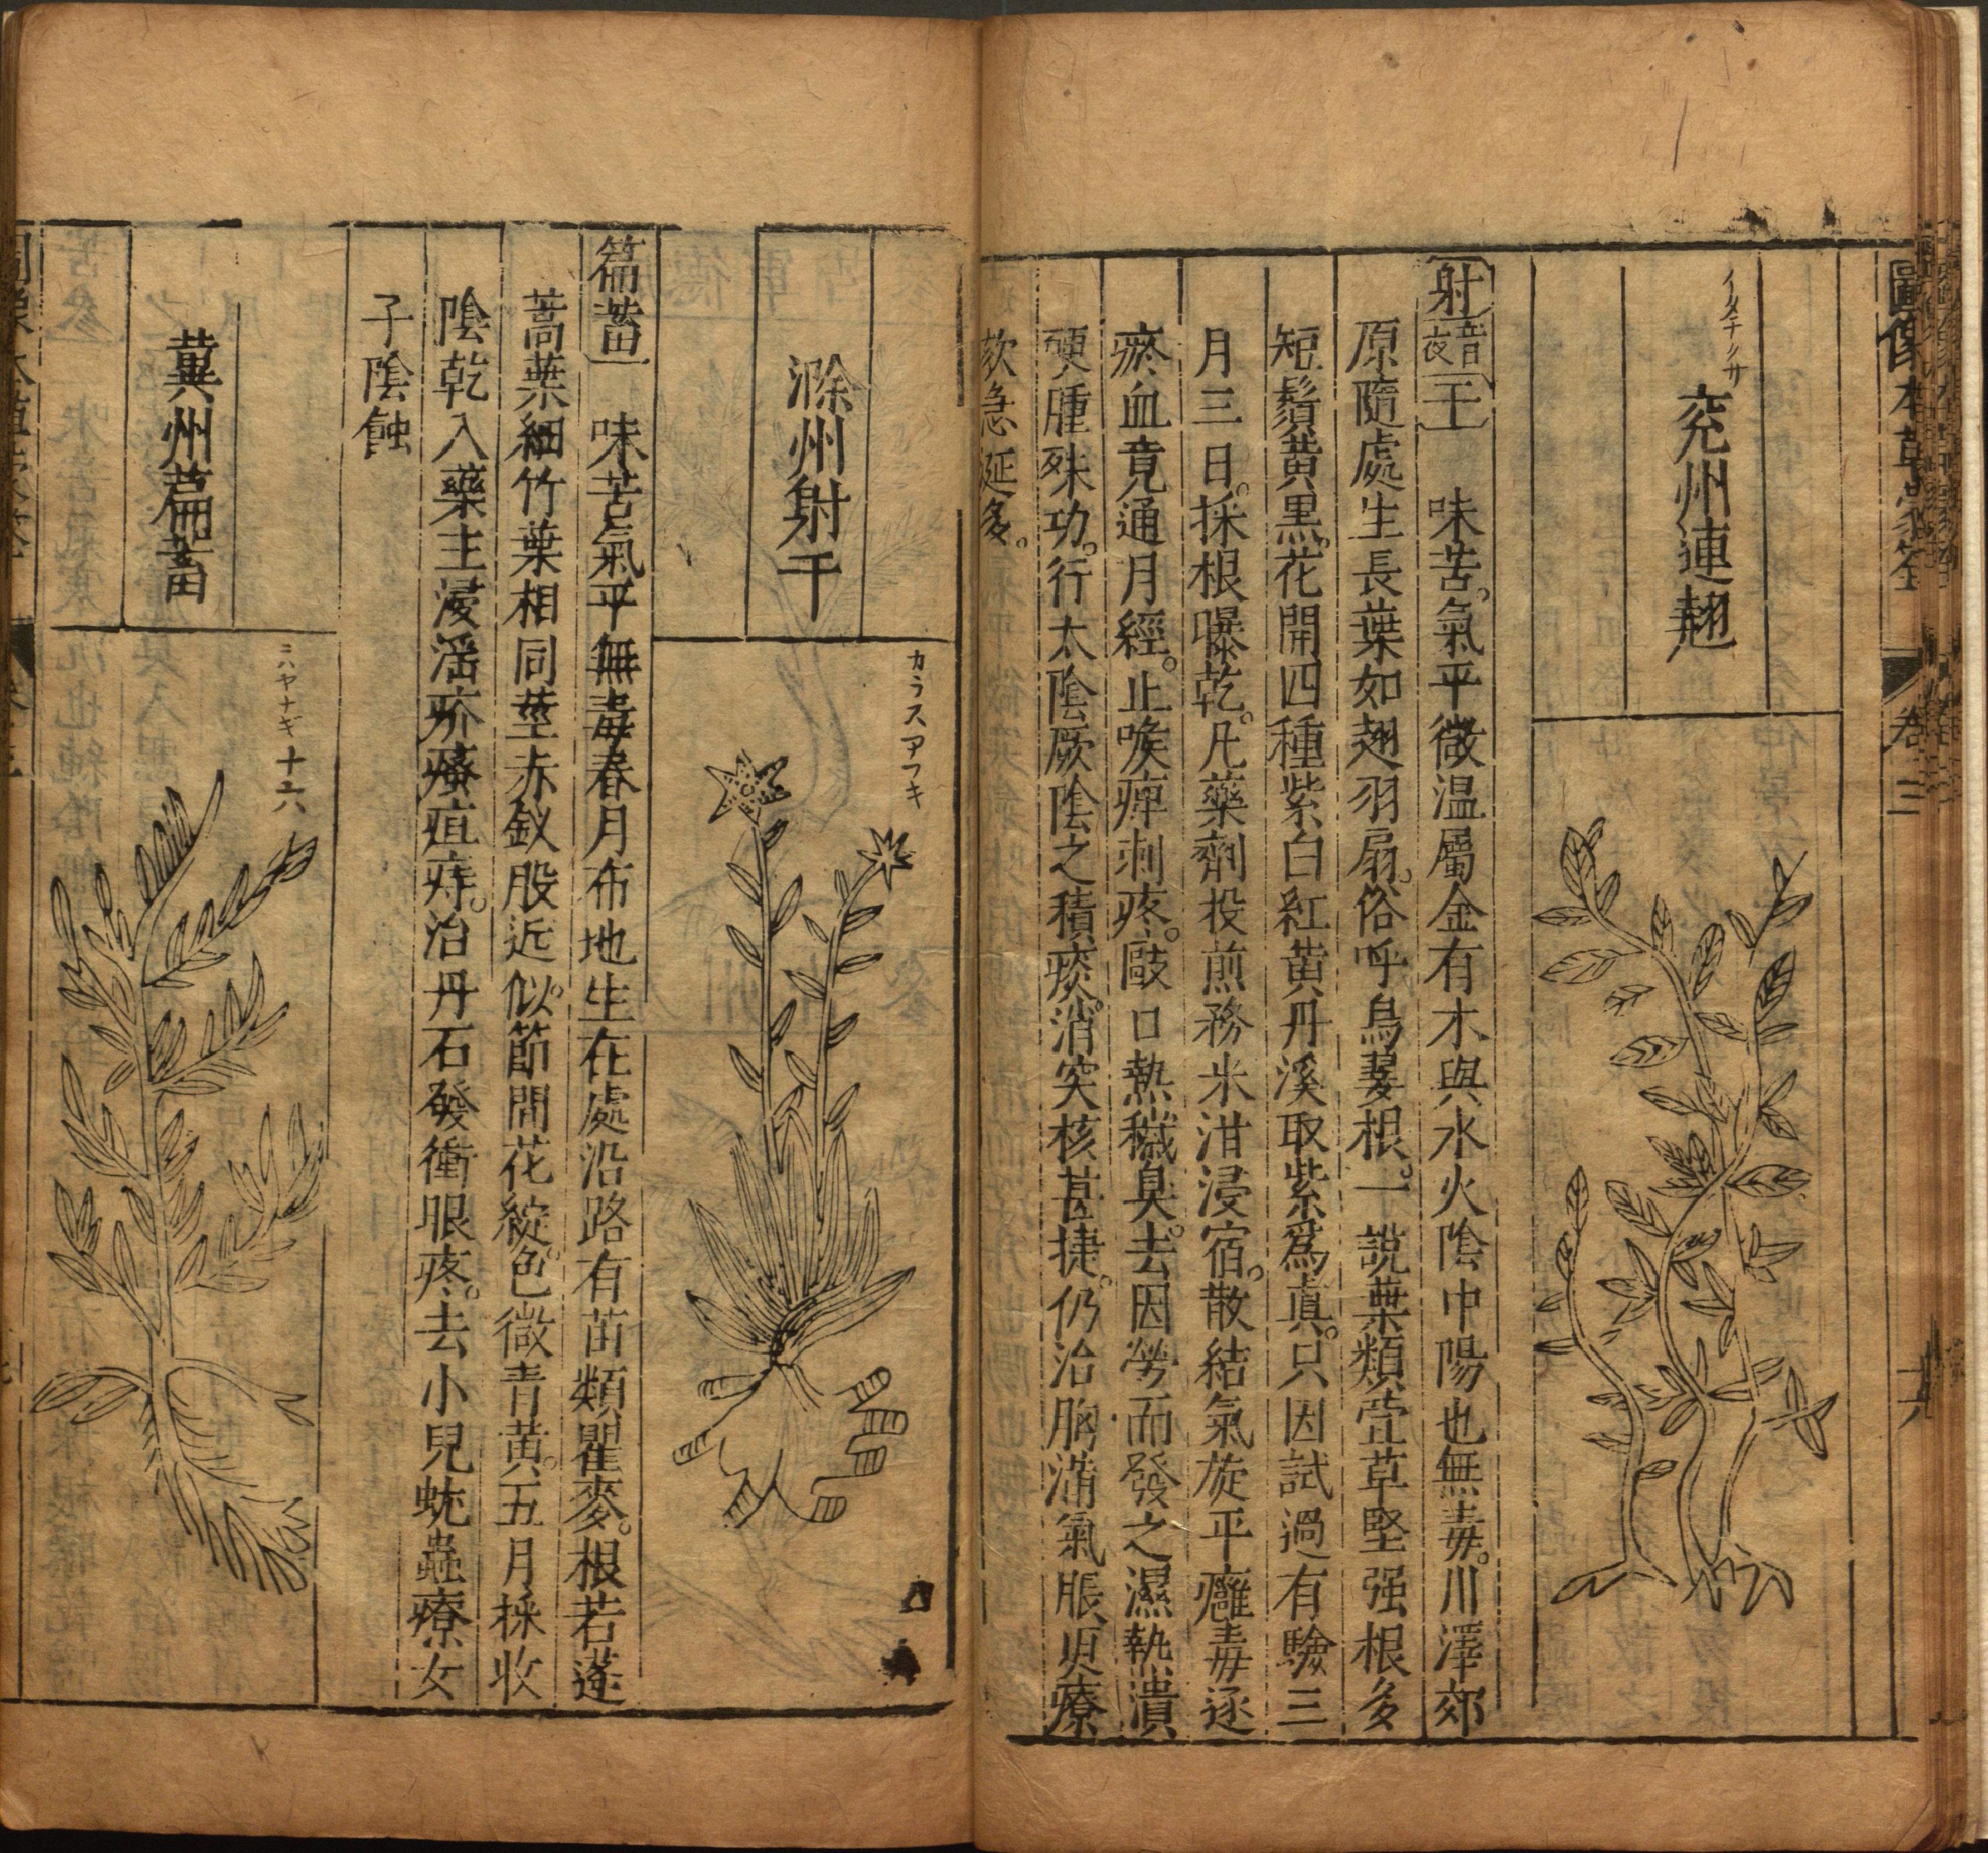 圖像本草蒙筌 卷三 十六
イタチクサ
兖州連翹
射音夜干 味苦。氣平微温屬金有木與水火陰中陽也無毒。川澤郊
原隨處生長葉如翅羽扇。俗呼烏翣根。一說葉類萓草堅强根多
短鬚黄黒。花開四種紫白紅黄丹溪取紫爲真。只因試過有驗三
月三日。採根曝乾。凡藥劑投煎務米泔浸宿。散結氣旋平癰毒逐
瘀血竟通月經。止喉痺刺疼。敺口熱穢臭。去因勞而發之濕熱潰
硬腫殊功。行太陰厥陰之積痰。消突核甚捷。仍治胸滿氣脹更療
欬急涎多。
滁州射干
カラスアフキ
萹蓄 味苦氣平無毒春月布地生在處沿路有苗類瞿麥。根若蓬
蒿葉細竹葉相同莖赤釵股近似。節間花綻。色微青黄。五月採收
陰乾入藥主浸淫疥瘙疽痔。治丹石發衝眼疼。去小兒蚘蟲療女
子陰蝕
冀州萹蓄
ニハヤナギ
十六